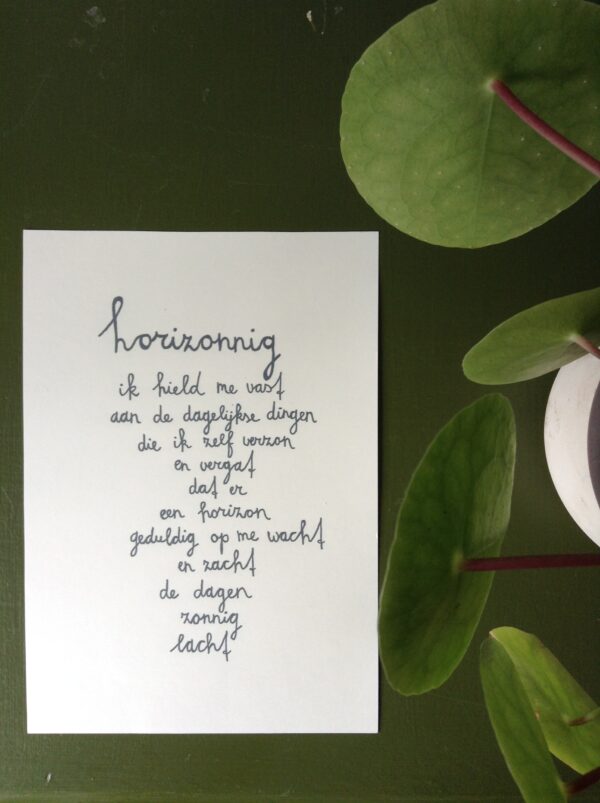 horizonnig
ik hield me vast
aan de dagelijkse dingen
die ik zelf verzon
en vergat
dat er
een horizon
geduldig op me wacht
en zacht
de dagen
zonnig
lacht